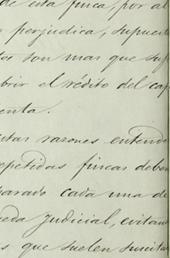 de esta finca, por al
perjudica, supuest
son mas que suf
brir el rédito del cap
enta.
stas razones entiend
epetidas fincas deber
parado cada una de
eda judicial, evitan
s que suelen suscitar